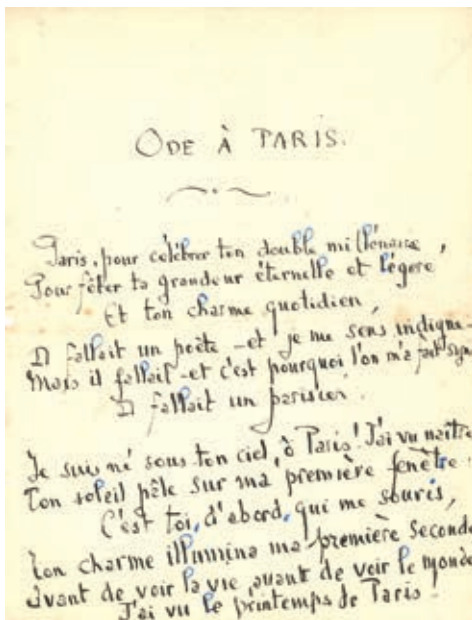 ODE À PARIS.
Paris, pour célébrer ton double millénaire,
Pour fêter ta grandeur éternelle et légère
Et ton charme quotidien,
Il fallait un poète - et je me sens indigne -
Mais il fallait - et c'est pourquoi l'on m'a fait sign
Il fallait un parisien.
Je suis né sous ton ciel, ô Paris! J'ai vu naître
Ton soleil pâle sur ma première fenêtre.
C'est toi, d'abord, qui me souris,
Ton charme illumina ma première seconde
Avant de voir la vie, avant de voir le monde
J'ai vu le printemps de Paris!